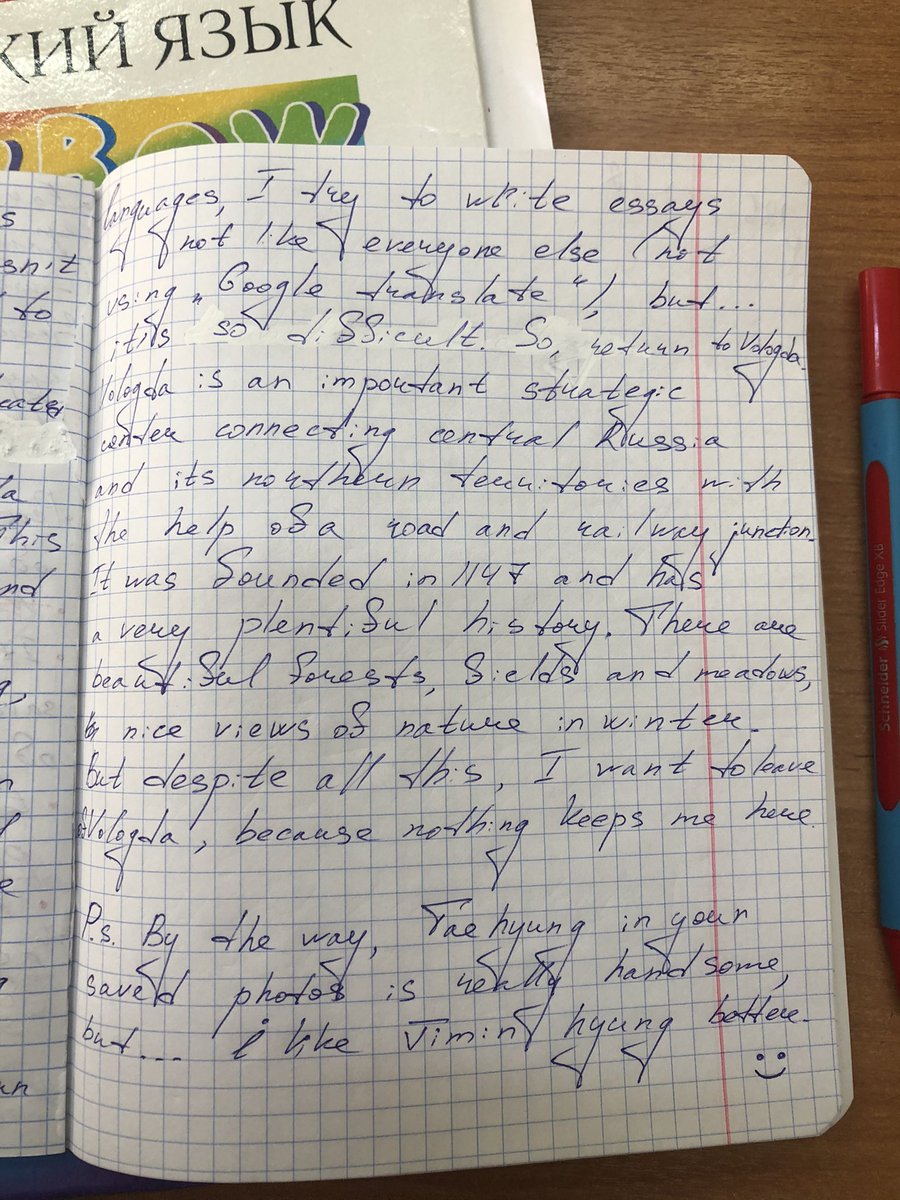 КИЙ ЯЗЫК
BOW
languages, I try to write essays
not like everyone else (not
using „Google translate“), but...
it is so difficult. So, return to Vologda.
Vologda is an important strategic
center connecting central Russia
and its northern territories with
the help of a road and railway junction.
It was founded in 1147 and has
a very plentiful history. There are
beautiful forests, fields and meadows,
nice views of nature in winter.
But despite all this, I want to leave
Vologda, because nothing keeps me here.
P.s. By the way, Taehyung in your
saved photos is really handsome,
but.... i like Jimin hyung better.
s
snit
to
cates
la
This
nd
g,
n
l
e
un
Schneider Slider Edge XB